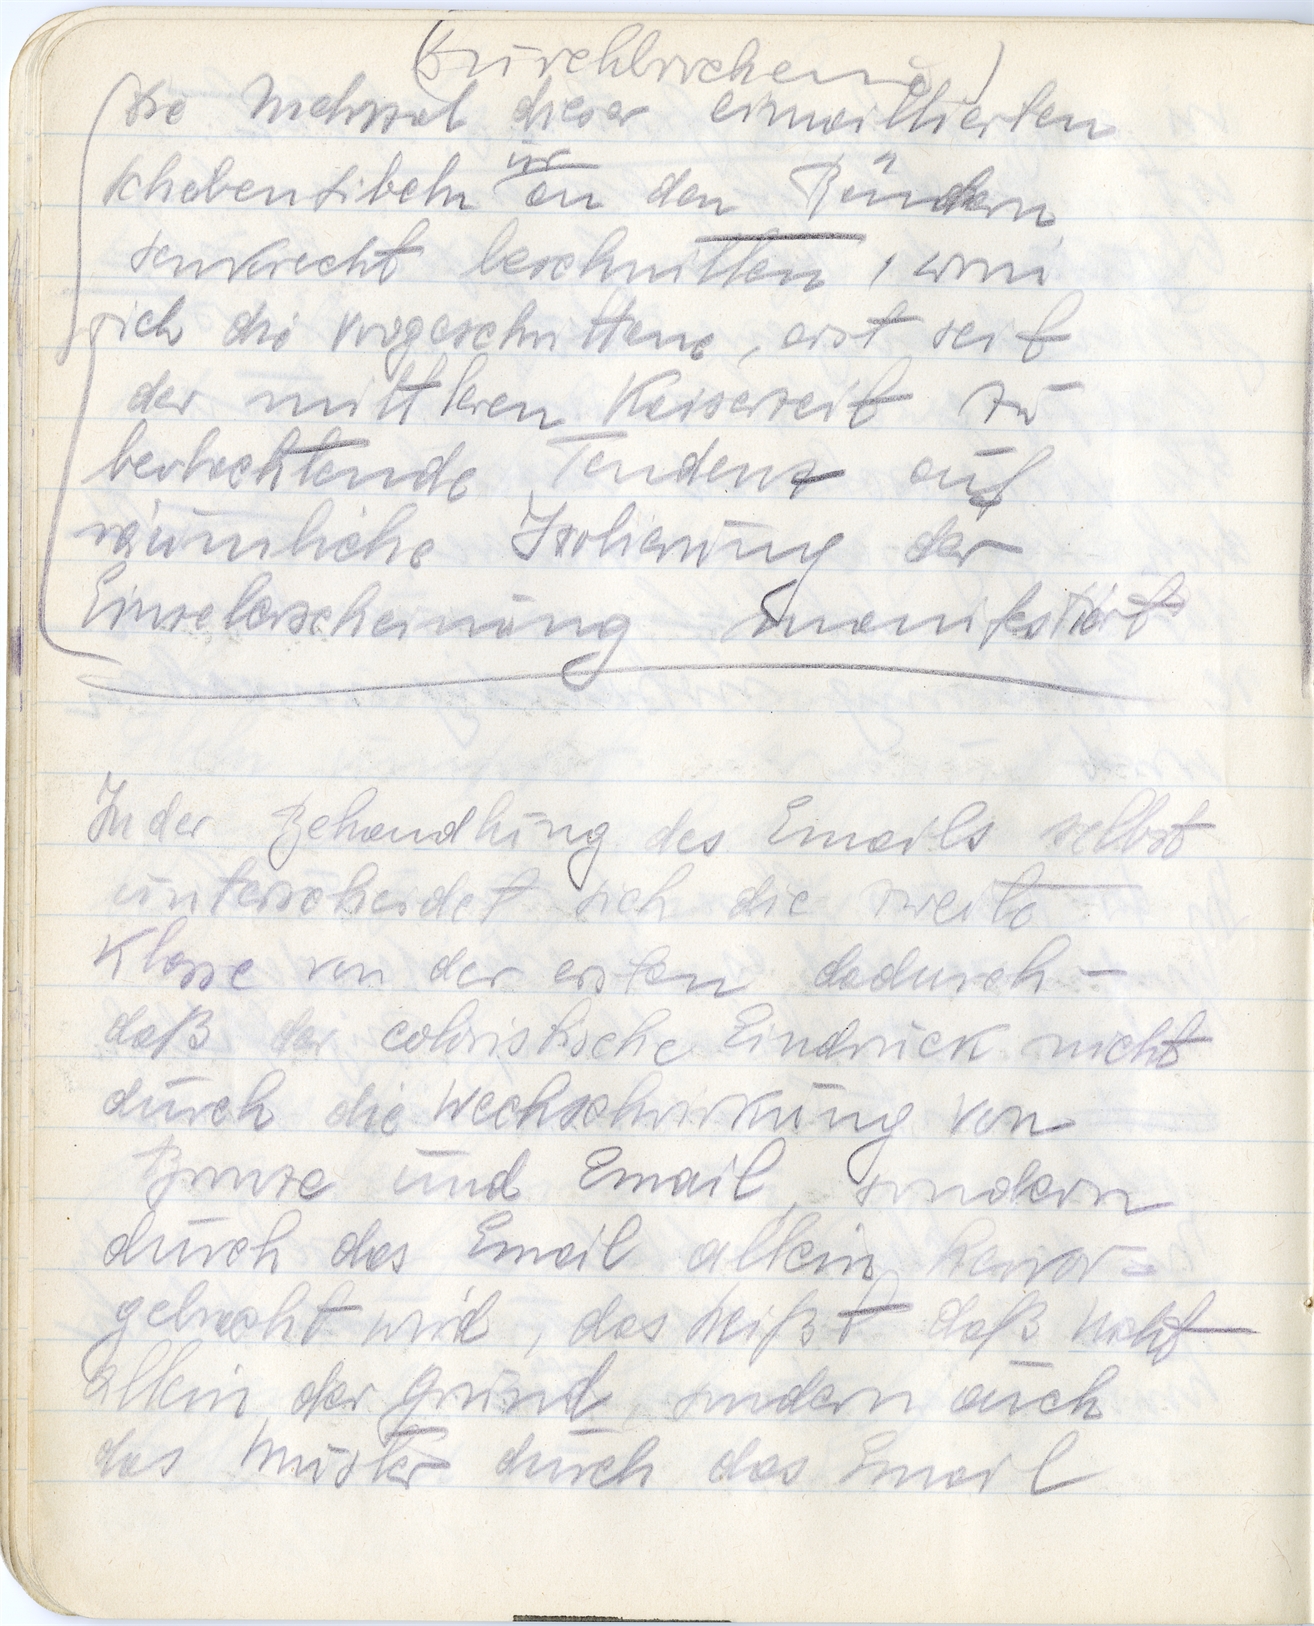 (Durchbrochene)
Die Mehrzal dieser emaillierten
Scheibenfibeln ist an den Rändern
senkrecht beschnitten, worin
sich die vorgeschrittene, erst seit
der mittleren Kaiserzeit zu
beobachtende Tendenz auf
räumliche Isolierung der
Einzelerscheinung manifestiert
In der Behandlung des Emails selbst
unterscheidet sich die zweite
Klasse von der ersten dadurch –
daß der coloristische Eindruck nicht
durch die Wechselwirkung von
Bronze und Email, sondern
durch das Email allein hervor=
gebracht wird, das heißt daß nicht
allein der Grund, sondern auch
das Muster durch das Email